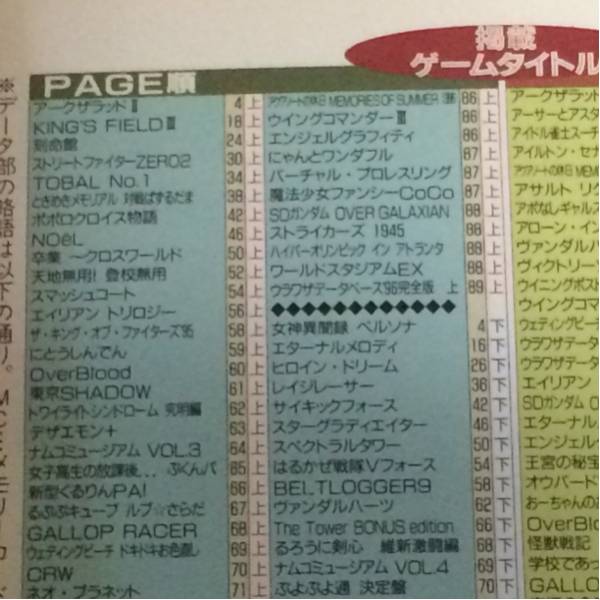 掲載
ゲームタイトル
PAGE順
アークザラッドⅡ 4 上
KING'S FIELDⅢ 18 上
刻命館 24 上
ストリートファイターZERO2 30 上
TOBAL No.1 34 上
ときめきメモリアル 対戦ぱずるだま 38 上
ポポロクロイス物語 42 上
NOëL 46 上
卒業 〜クロスワールド 50 上
天地無用! 登校無用 52 上
スマッシュコート 54 上
エイリアン トリロジー 56 上
ザ・キング・オブ・ファイターズ'95 58 上
にとうしんでん 59 上
OverBlood 60 上
東京SHADOW 61 上
トワイライトシンドローム 究明編 62 上
デザエモン+ 63 上
ナムコミュージアム VOL.3 64 上
女子高生の放課後... ぷくんパ 65 上
新型くるりんPA! 66 上
るぷぷキューブ ルプ☆さらだ 67 上
GALLOP RACER 68 上
ウェディングピーチ ドキドキお色直し 69 上
CRW 70 上
ネオ・プラネット 71 上
MEMORIES OF SUMMER 86 上
ウイングコマンダーⅢ 86 上
エンジェルグラフィティ 86 上
にゃんとワンダフル 87 上
バーチャル・プロレスリング 87 上
魔法少女ファンシーCoCo 87 上
SDガンダム OVER GALAXIAN 88 上
ストライカーズ 1945 88 上
ハイパーオリンピック イン アトランタ 88 上
ワールドスタジアムEX 88 上
ウラワザデータベース'96完全版 上 89 上
◆◆◆◆◆◆◆◆◆◆◆◆
女神異聞録 ペルソナ 4 下
エターナルメロディ 16 下
ヒロイン・ドリーム 26 下
レイジレーサー 36 下
サイキックフォース 42 下
スターグラディエイター 46 下
スペクトラルタワー 50 下
はるかぜ戦隊Vフォース 54 下
BELTLOGGER9 58 下
ヴァンダルハーツ 62 下
The Tower BONUS edition 66 下
るろうに剣心 維新激闘編 68 下
ナムコミュージアム VOL.4 69 下
ぷよぷよ通 決定盤 70 下
アークザラッド
アーサーとアスタ
アイドル雀士スーチ
アイルトン・セナ
アサルト リグ
アポなしギャルズ
アローン・イン
ヴァンダルハ
ヴィクトリー
ウイニングポスト
ウイングコマ
ウェディングピーチ
ウラワザデータ
ウラワザデータ
エイリアン
SDガンダム O
エターナル
エンジェル
王宮の秘宝
オウバード
おーちゃんのお
OverBlo
怪獣戦記
学校であっ
GALLO
※データ部の略語は以下の通り。